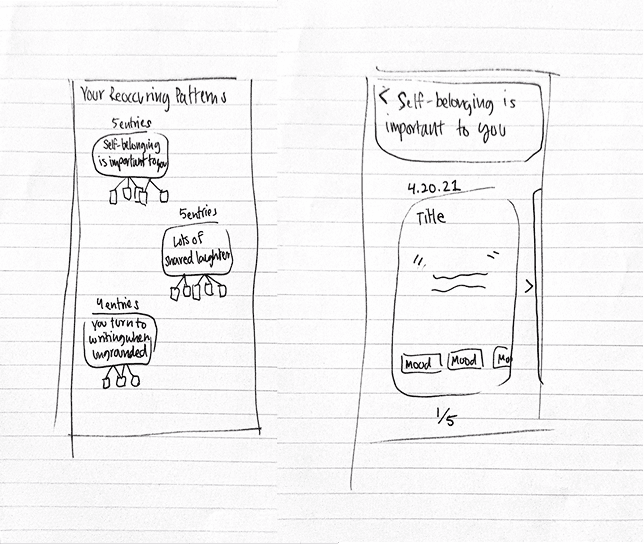 Your Reoccuring Patterns
5 entries
Self-belonging
is important to you
5 entries
Lots of
shared laughter
4 entries
you turn to
writing when
ungrounded
< Self-belonging is
important to you
4.20.21
Title
" "
>
Mood Mood Mo
1/5